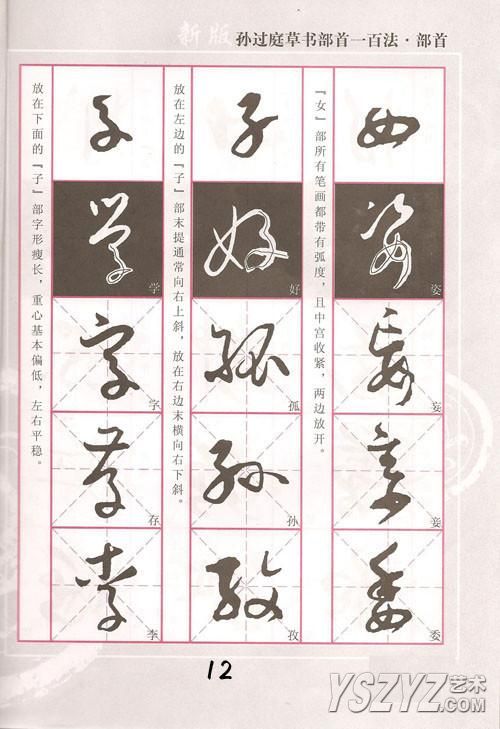 新版 孙过庭草书部首一百法·部首
女
姿
妄
妾
委
『女』部所有笔画都带有弧度，且中宫收紧，两边放开。
子
好
孤
孙
孜
放在左边的『子』部末提通常向右上斜，放在右边末横向右下斜。
子
学
字
存
李
放在下面的『子』部字形瘦长，重心基本偏低，左右平稳。
12
YSZYZ艺术.COM